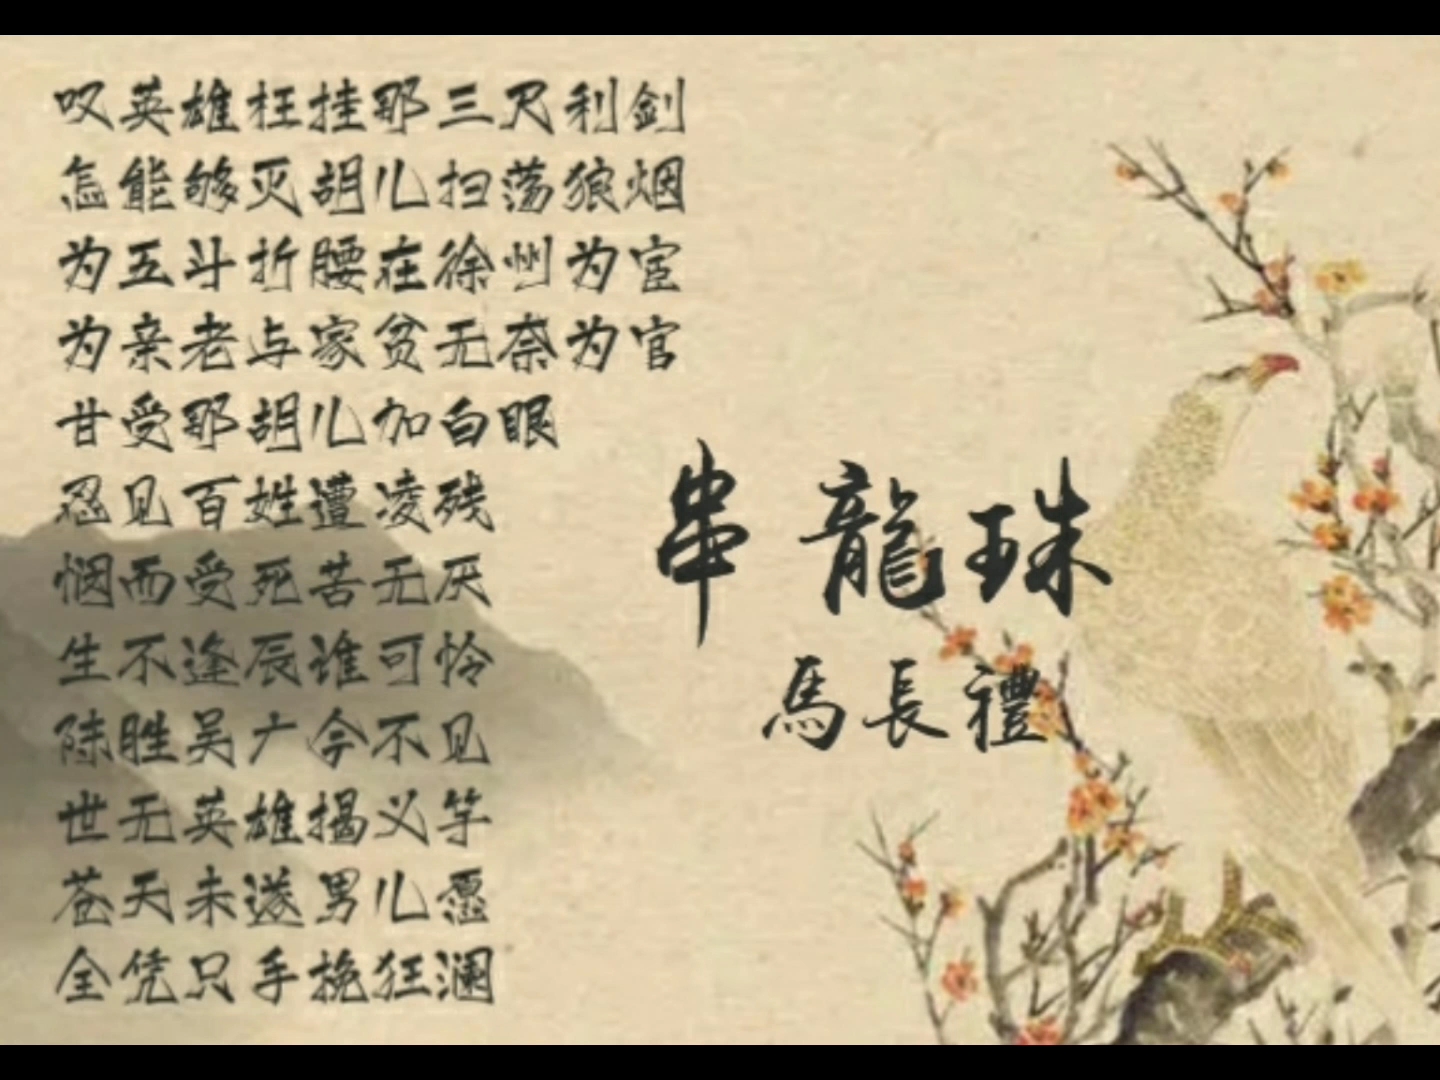 叹英雄枉挂那三尺利剑
怎能够灭胡儿扫荡狼烟
为五斗折腰在徐州为宦
为亲老与家贫无奈为官
甘受那胡儿加白眼
忍见百姓遭凌残
悃而受死苦无厌
生不逢辰谁可怜
陈胜吴广今不见
世无英雄揭义竿
苍天未遂男儿愿
全凭只手挽狂澜
串龍珠
馬長禮